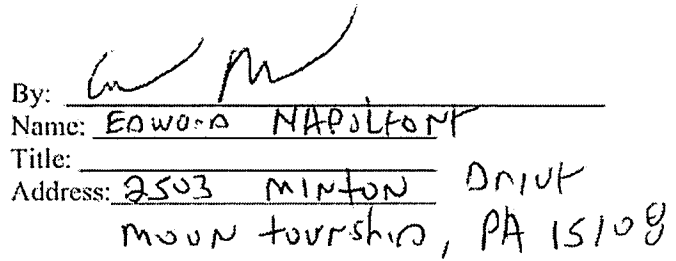 By:
Name: EDWARD NAPOLEONE
Title:
Address: 2503 MINTON DRIVE
MOON township, PA 15108